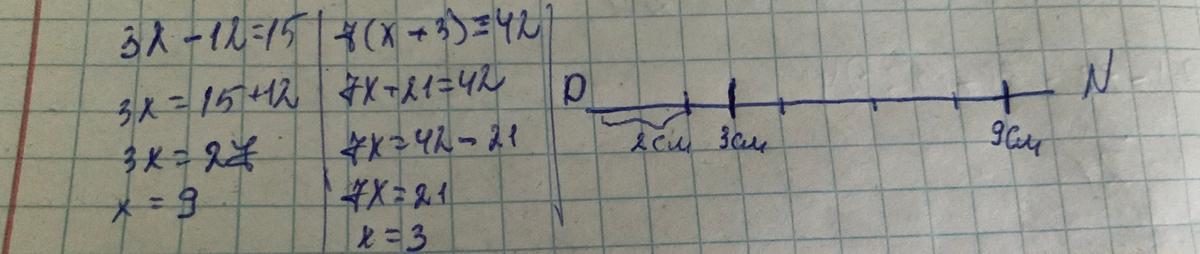 3x - 12 = 15
3x = 15 + 12
3x = 27
x = 9
7(x + 3) = 42
7x + 21 = 42
7x = 42 - 21
7x = 21
x = 3
D N
2см 3см 9см